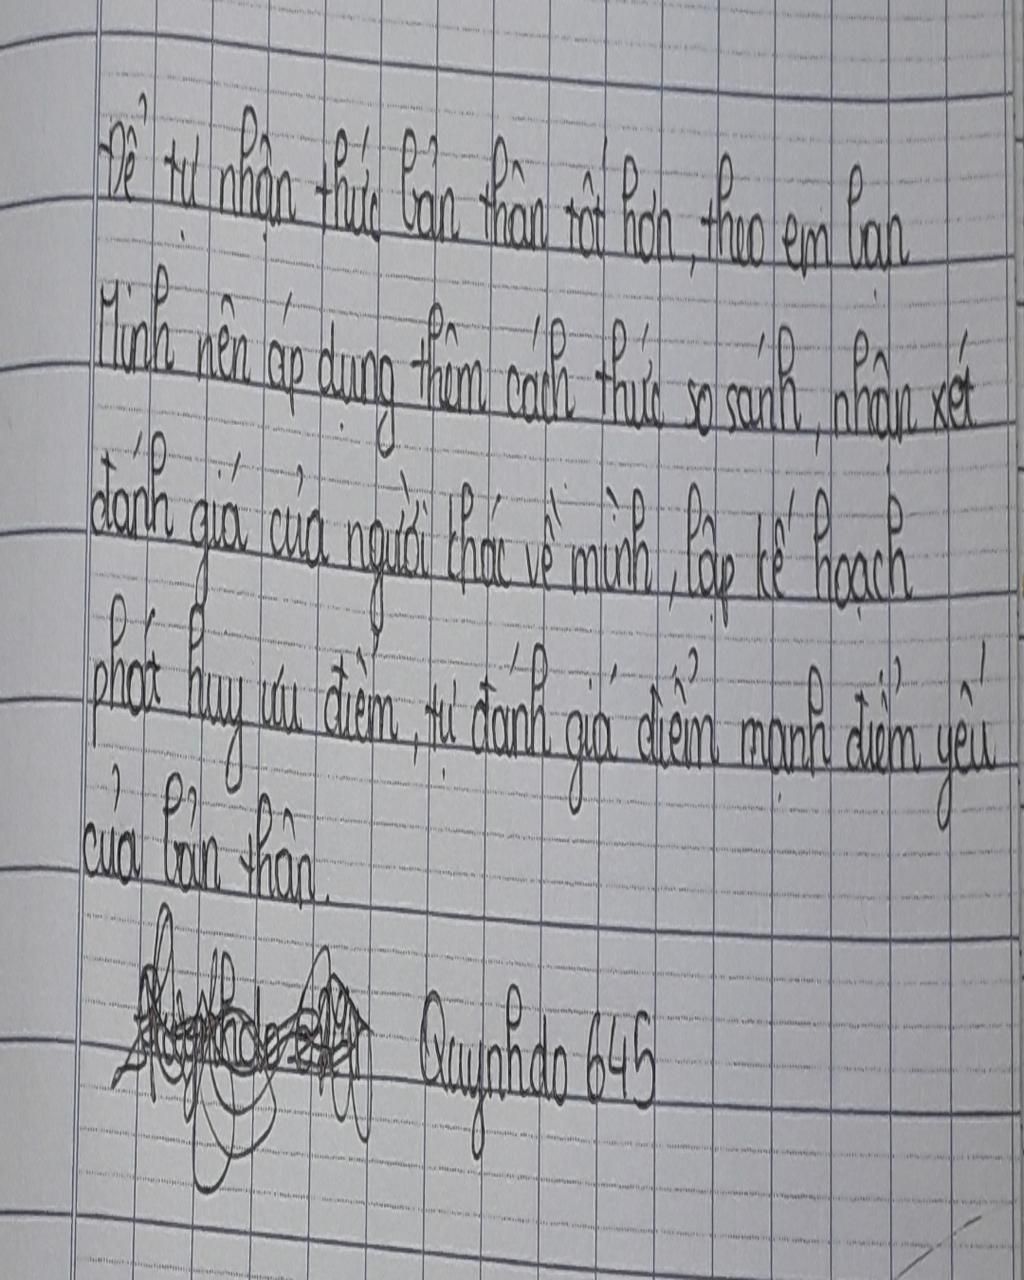 Để tự nhận thức bản thân tốt hơn, theo em bạn
Minh nên áp dụng thêm cách thức so sánh, nhận xét
đánh giá của người khác về mình, lập kế hoạch
phát huy ưu điểm, tự đánh giá điểm mạnh điểm yếu
của bản thân.
Quynhdo 645